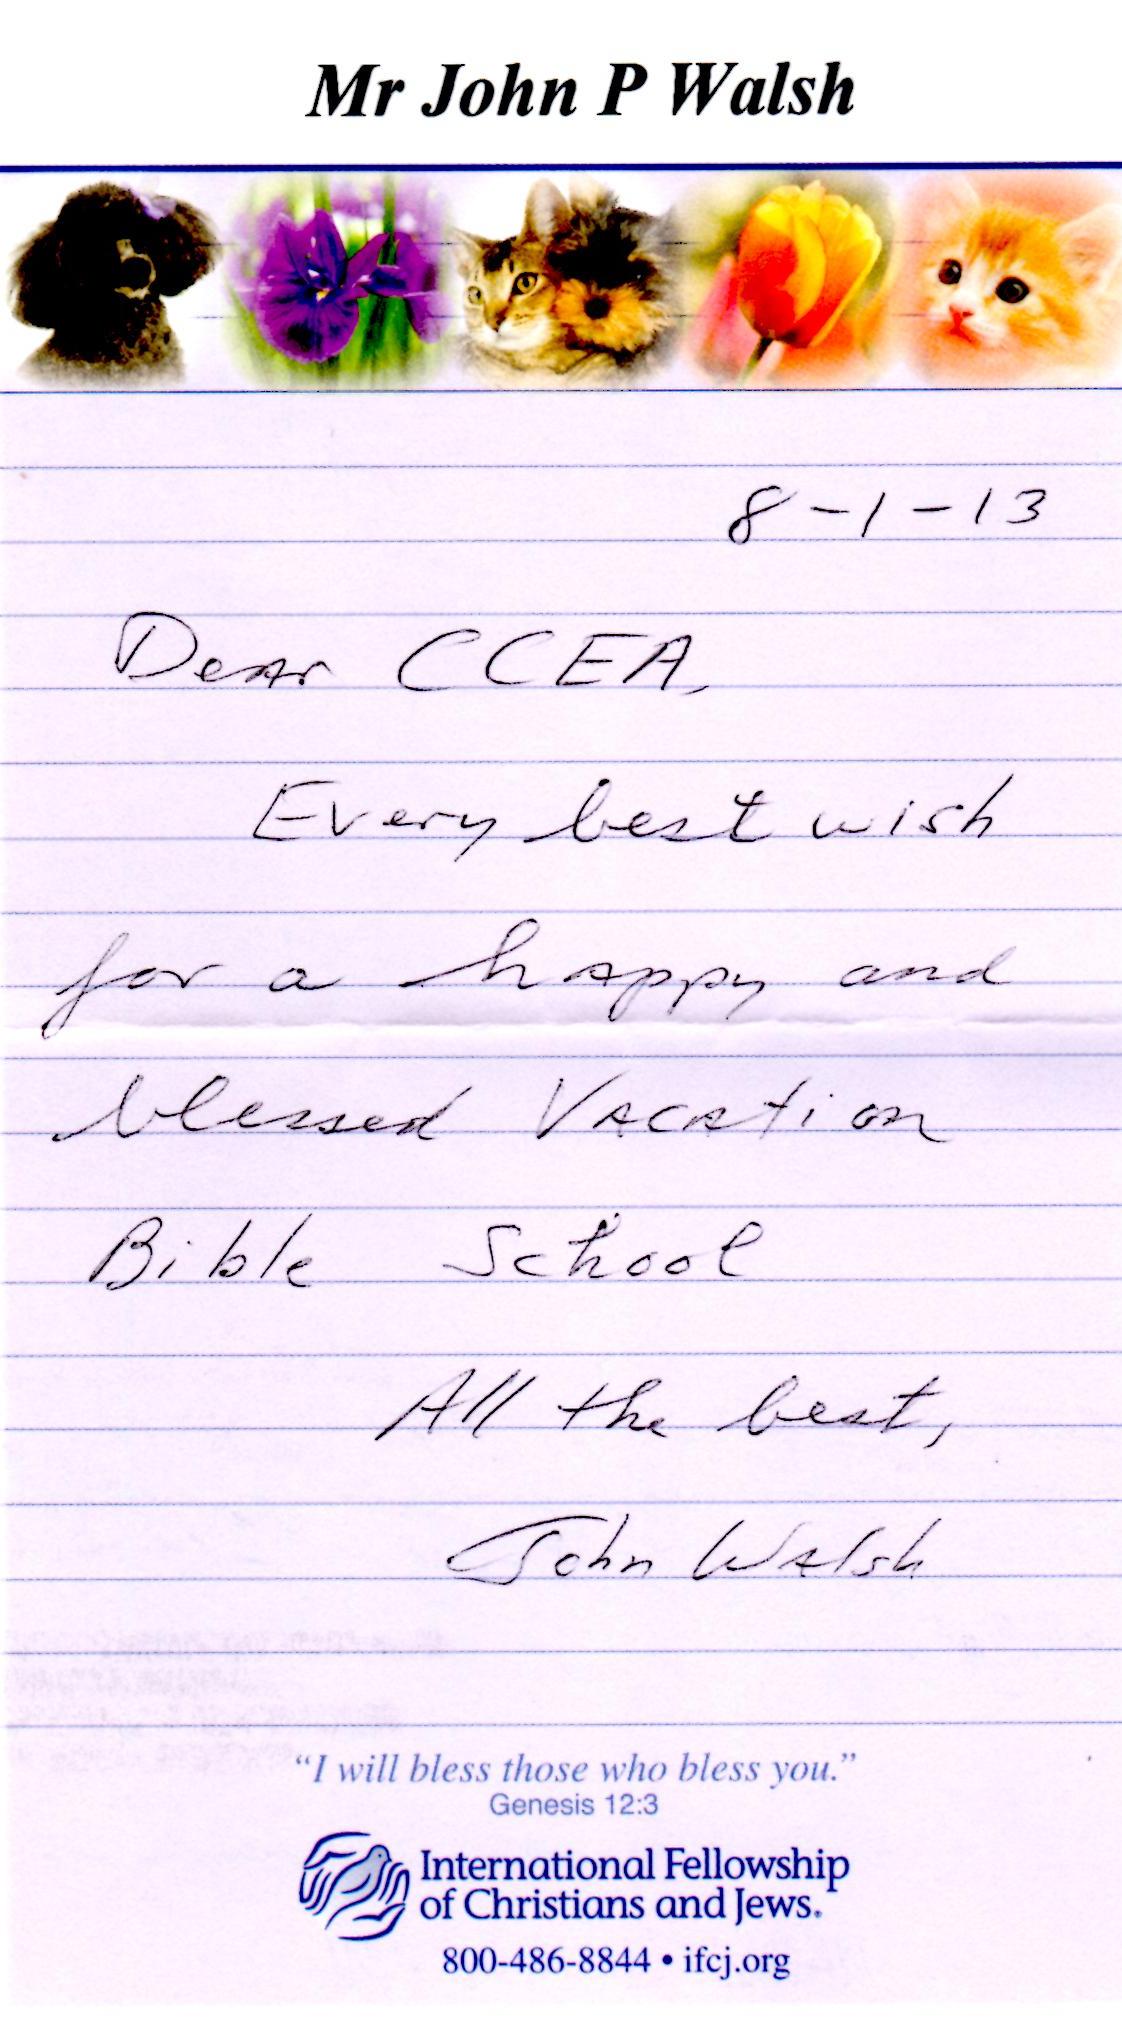 Mr John P Walsh
8-1-13
Dear CCEA,
Every best wish
for a happy and
blessed Vacation
Bible School
All the best,
John Walsh
“I will bless those who bless you.”
Genesis 12:3
International Fellowship
of Christians and Jews.
800-486-8844 • ifcj.org